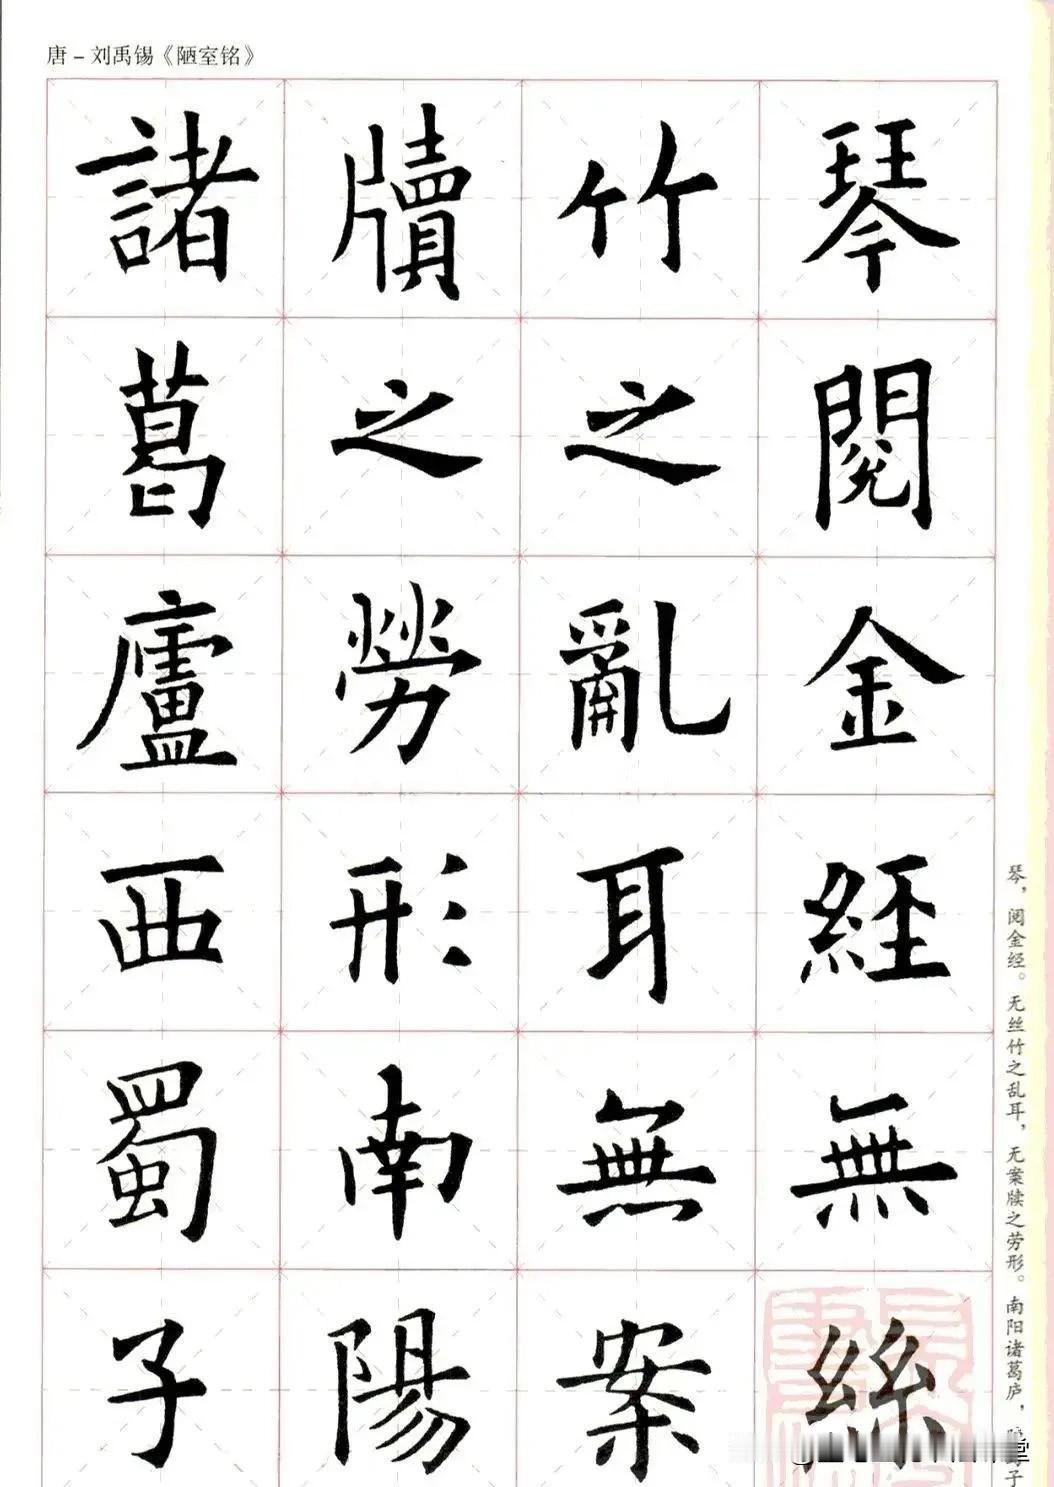 唐－刘禹锡《陋室铭》
琴閱金經無絲
竹之亂耳無案
牘之勞形南陽
諸葛廬西蜀子
琴，阅金经。无丝竹之乱耳，无案牍之劳形。南阳诸葛庐，